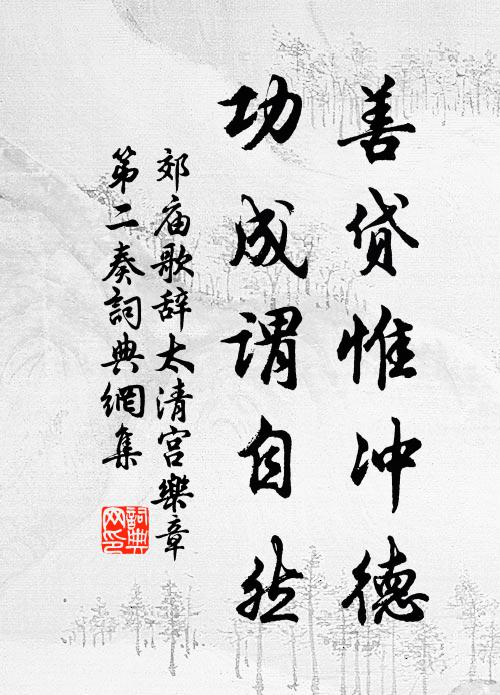 善贷惟冲德
功成谓自然
郊庙歌辞太清宫樂章
第二奏詞典網集
詞典网印